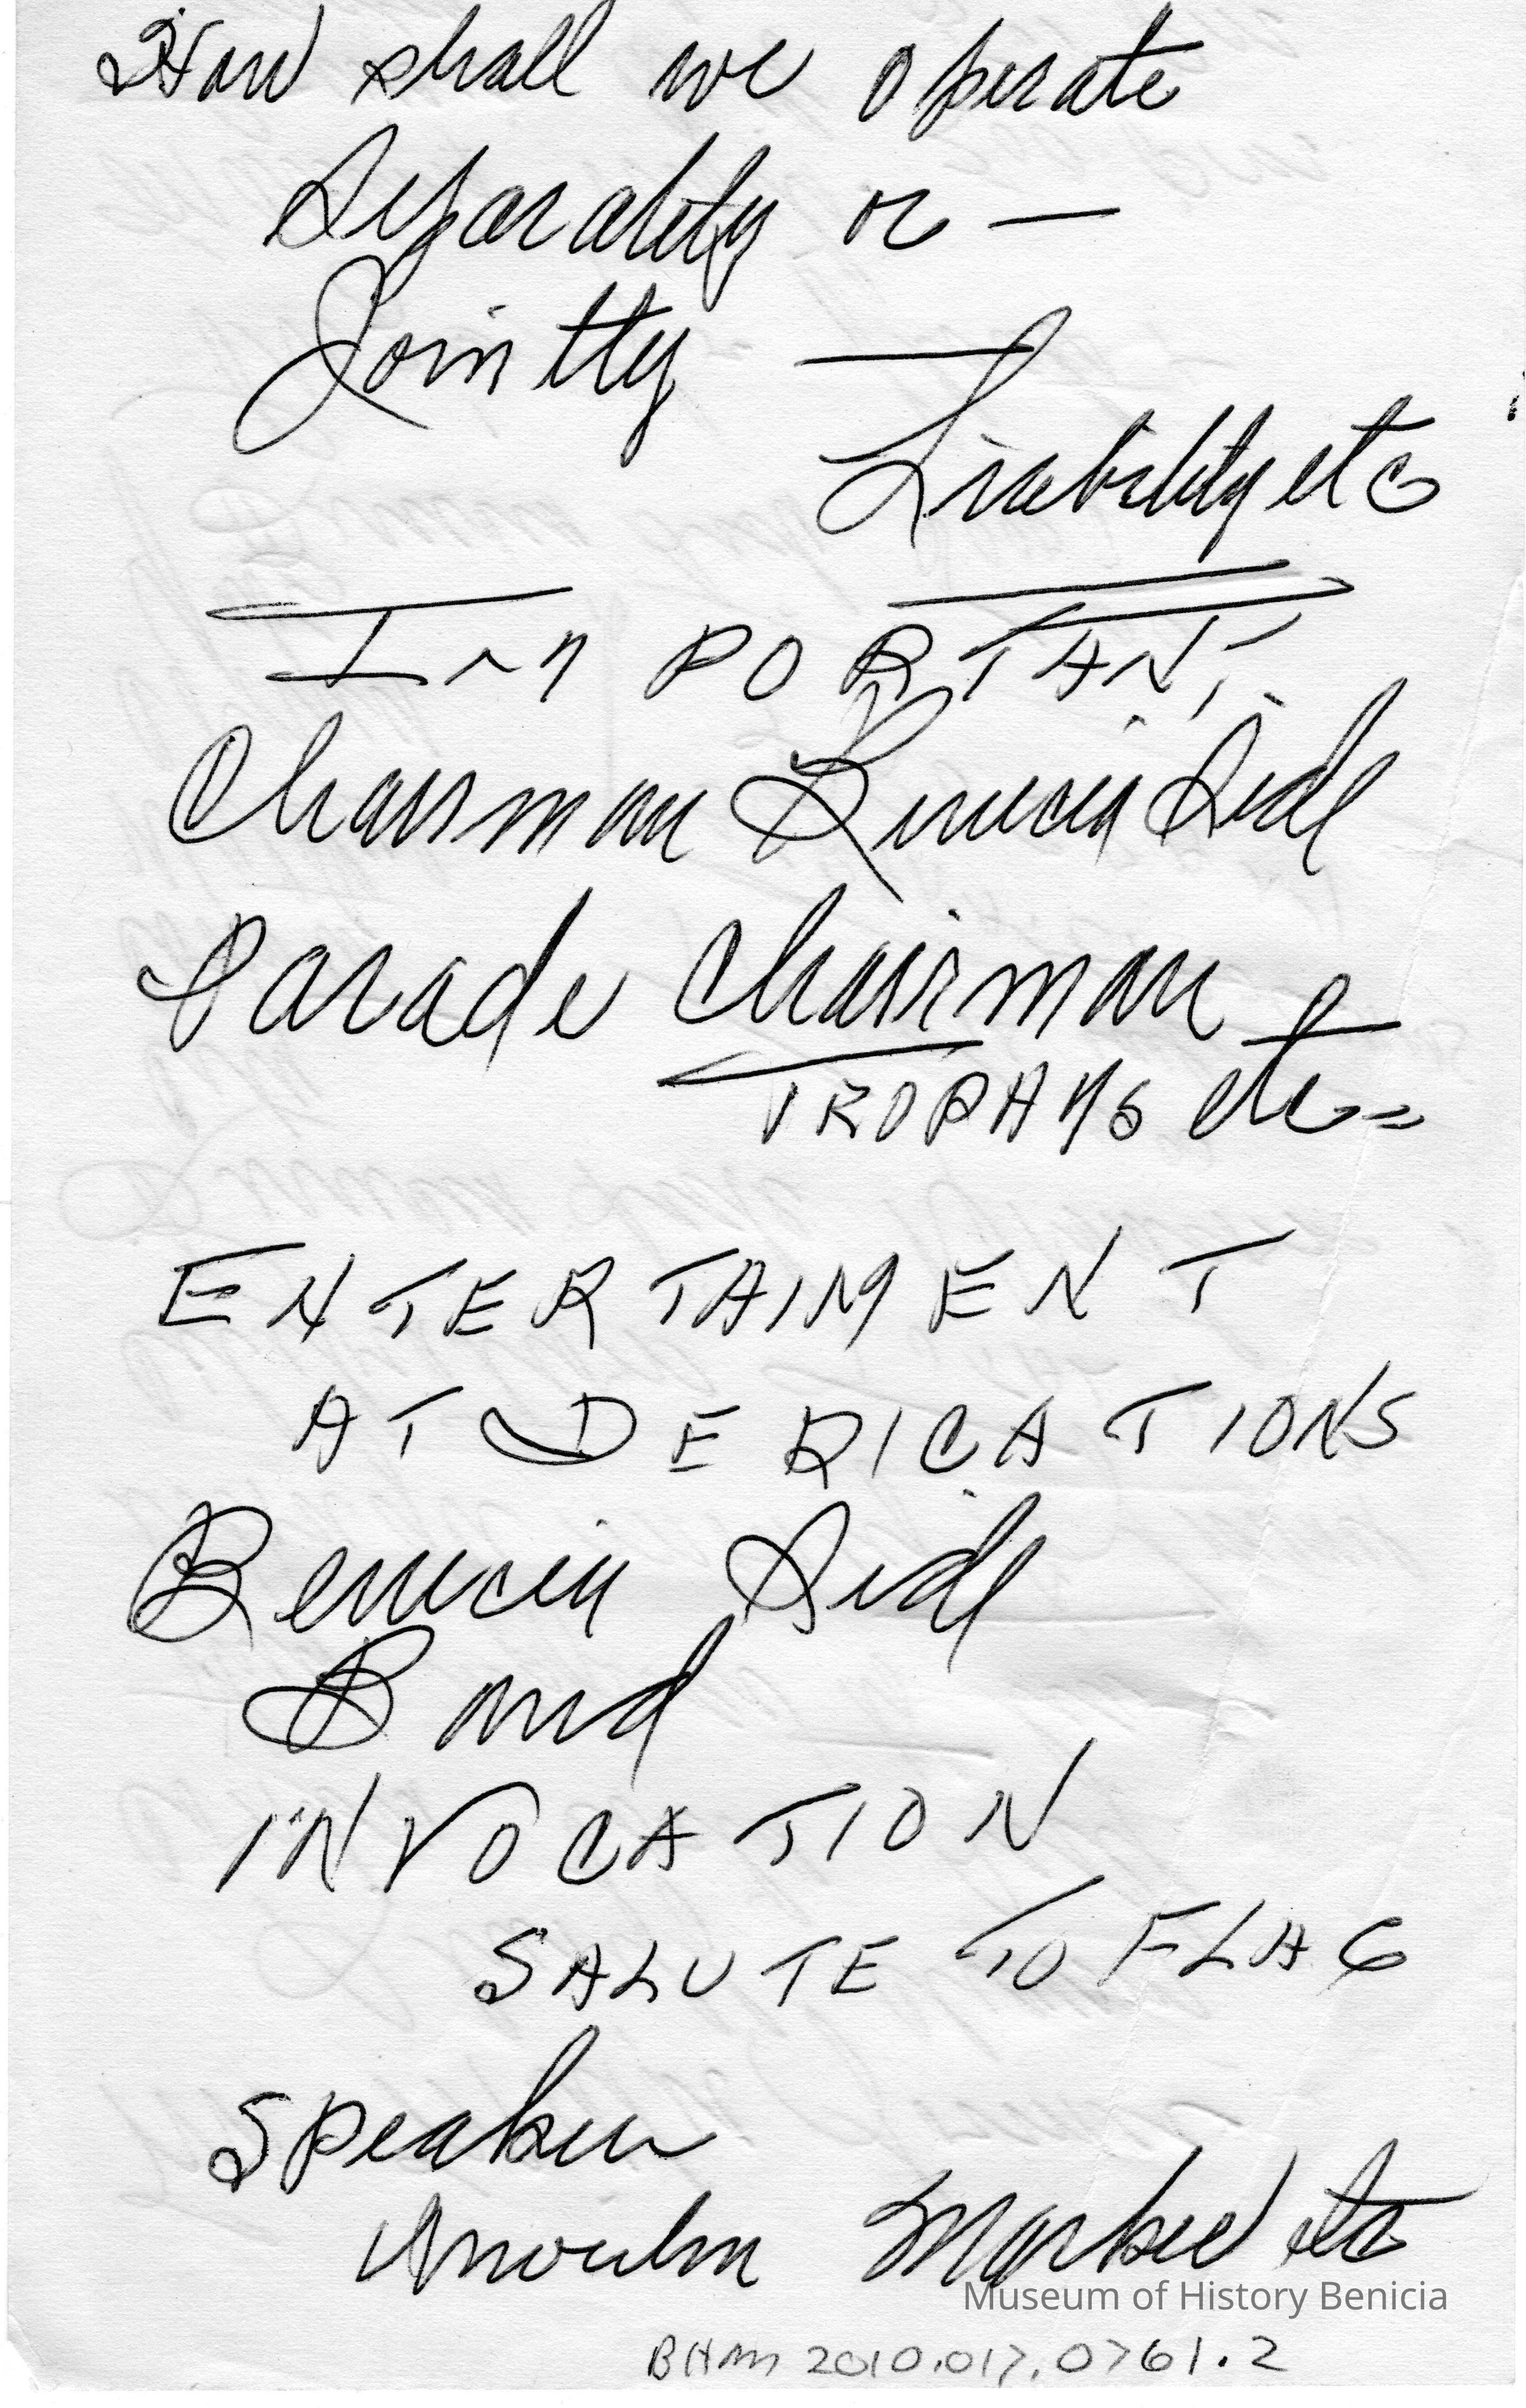 How shall we operate
Separately or —
Jointly —
Liability etc
IMPORTANT
Chairman Benicia Side
Parade Chairman
TROPHYS etc =
ENTERTAIMENT
AT DEDICATIONS
Benicia Side
Band
INVOCATION
SALUTE TO FLAG
Speaker
Unveiling Marker etc
Museum of History Benicia
BHM 2010.017.0761.2